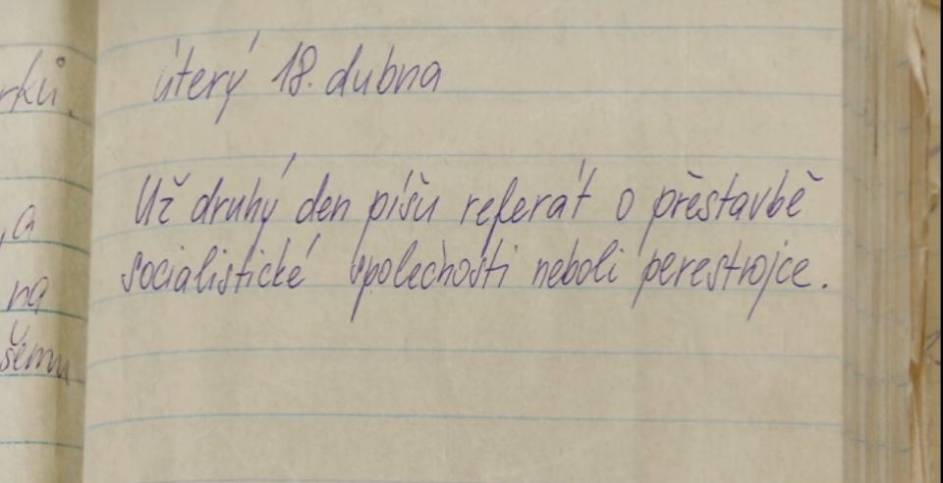 úterý 18. dubna
Už druhý den píšu referát o přestavbě
socialistické společnosti neboli perestrojce.
rků.
, a
na
šemu